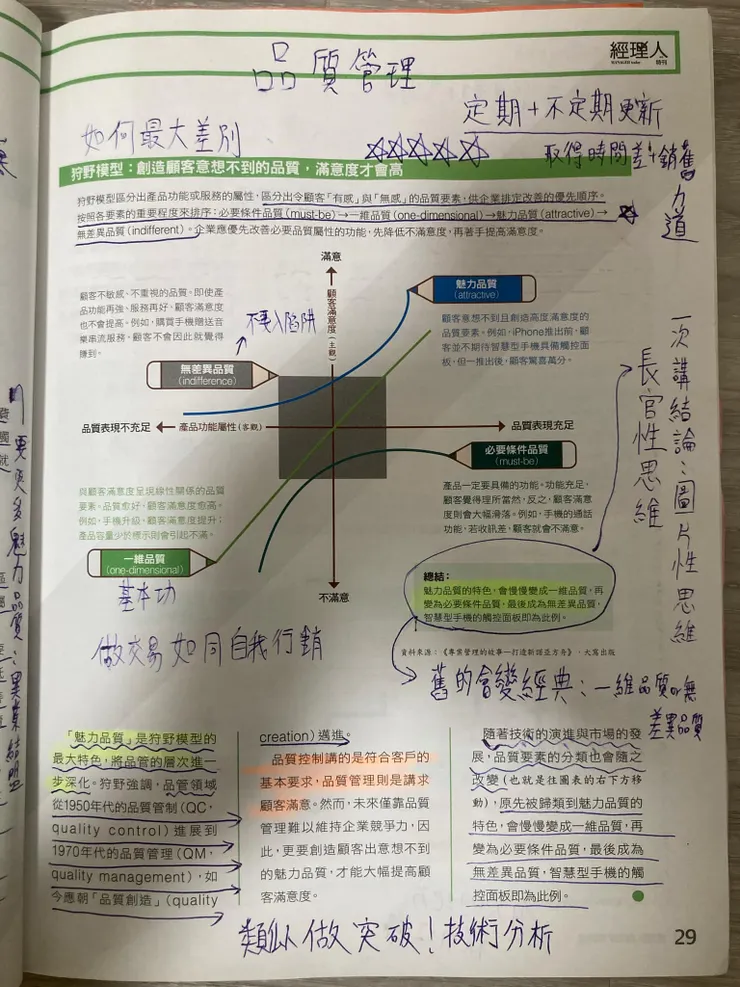 品質管理
經理人
MANAGER today
特刊
定期+不定期更新
如何最大差別
取得時間差+銷售
力道
狩野模型：創造顧客意想不到的品質，滿意度才會高
狩野模型區分出產品功能或服務的屬性，區分出令顧客「有感」與「無感」的品質要素，供企業排定改善的優先順序。
按照各要素的重要程度來排序：必要條件品質（must-be）→一維品質（one-dimensional）→魅力品質（attractive）→
無差異品質（indifferent）。企業應優先改善必要品質屬性的功能，先降低不滿意度，再著手提高滿意度。
滿意
顧客滿意度（主觀）
魅力品質
（attractive）
顧客意想不到且創造高度滿意度的
品質要素。例如，iPhone推出前，顧
客並不期待智慧型手機具備觸控面
板，但一推出後，顧客驚喜萬分。
顧客不敏感、不重視的品質。即使產
品功能再強、服務再好，顧客滿意度
也不會提高。例如，購買手機贈送音
樂串流服務，顧客不會因此就覺得
賺到。
不要入陷阱
無差異品質
（indifference）
品質表現不充足
產品功能屬性（客觀）
品質表現充足
必要條件品質
（must-be）
產品一定要具備的功能。功能充足，
顧客覺得理所當然，反之，顧客滿意
度則會大幅滑落。例如，手機的通話
功能，若收訊差，顧客就會不滿意。
與顧客滿意度呈現線性關係的品質
要素。品質愈好，顧客滿意度愈高。
例如，手機升級，顧客滿意度提升；
產品容量少於標示則會引起不滿。
一維品質
（one-dimensional）
基本功
不滿意
總結：
魅力品質的特色，會慢慢變成一維品質，再
變為必要條件品質，最後成為無差異品質，
智慧型手機的觸控面板即為此例。
一次講結論：圖片性思維
長官性思維
資料來源：《專案管理的故事─打造新諾亞方舟》，大寫出版
做交易如同自我行銷
舊的會變經典：一維品質or無
差異品質
「魅力品質」是狩野模型的
最大特色，將品管的層次進一
步深化。狩野強調，品管領域
從1950年代的品質管制（QC，
quality control）進展到
1970年代的品質管理（QM，
quality management），如
今應朝「品質創造」（quality
creation）邁進。
品質控制講的是符合客戶的
基本要求，品質管理則是講求
顧客滿意。然而，未來僅靠品質
管理難以維持企業競爭力，因
此，更要創造顧客出意想不到
的魅力品質，才能大幅提高顧
客滿意度。
隨著技術的演進與市場的發
展，品質要素的分類也會隨之
改變（也就是往圖表的右下方移
動），原先被歸類到魅力品質的
特色，會慢慢變成一維品質，再
變為必要條件品質，最後成為
無差異品質，智慧型手機的觸
控面板即為此例。
類似做突破！技術分析
29